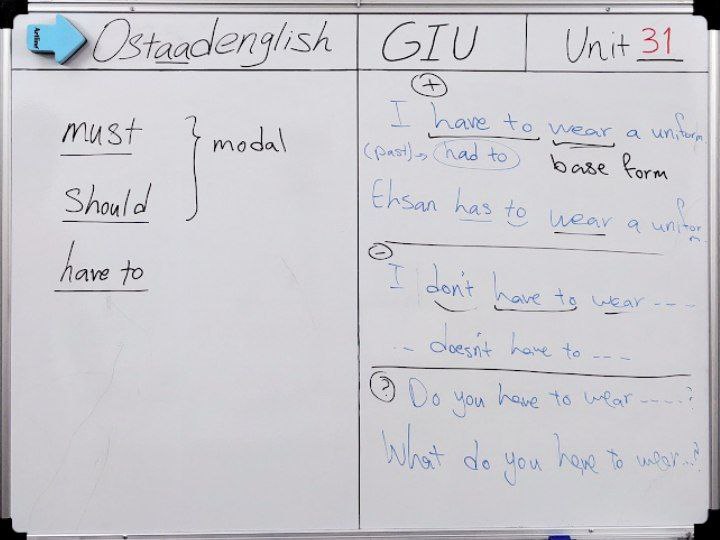 Artline
Ostaadenglish
GIU
Unit 31
must
should
have to
modal
+
I have to wear a uniform.
(past)→ had to
base form
Ehsan has to wear a uniform.
-
I don't have to wear ----
-- doesn't have to ---
?
Do you have to wear ----?
What do you have to wear...?